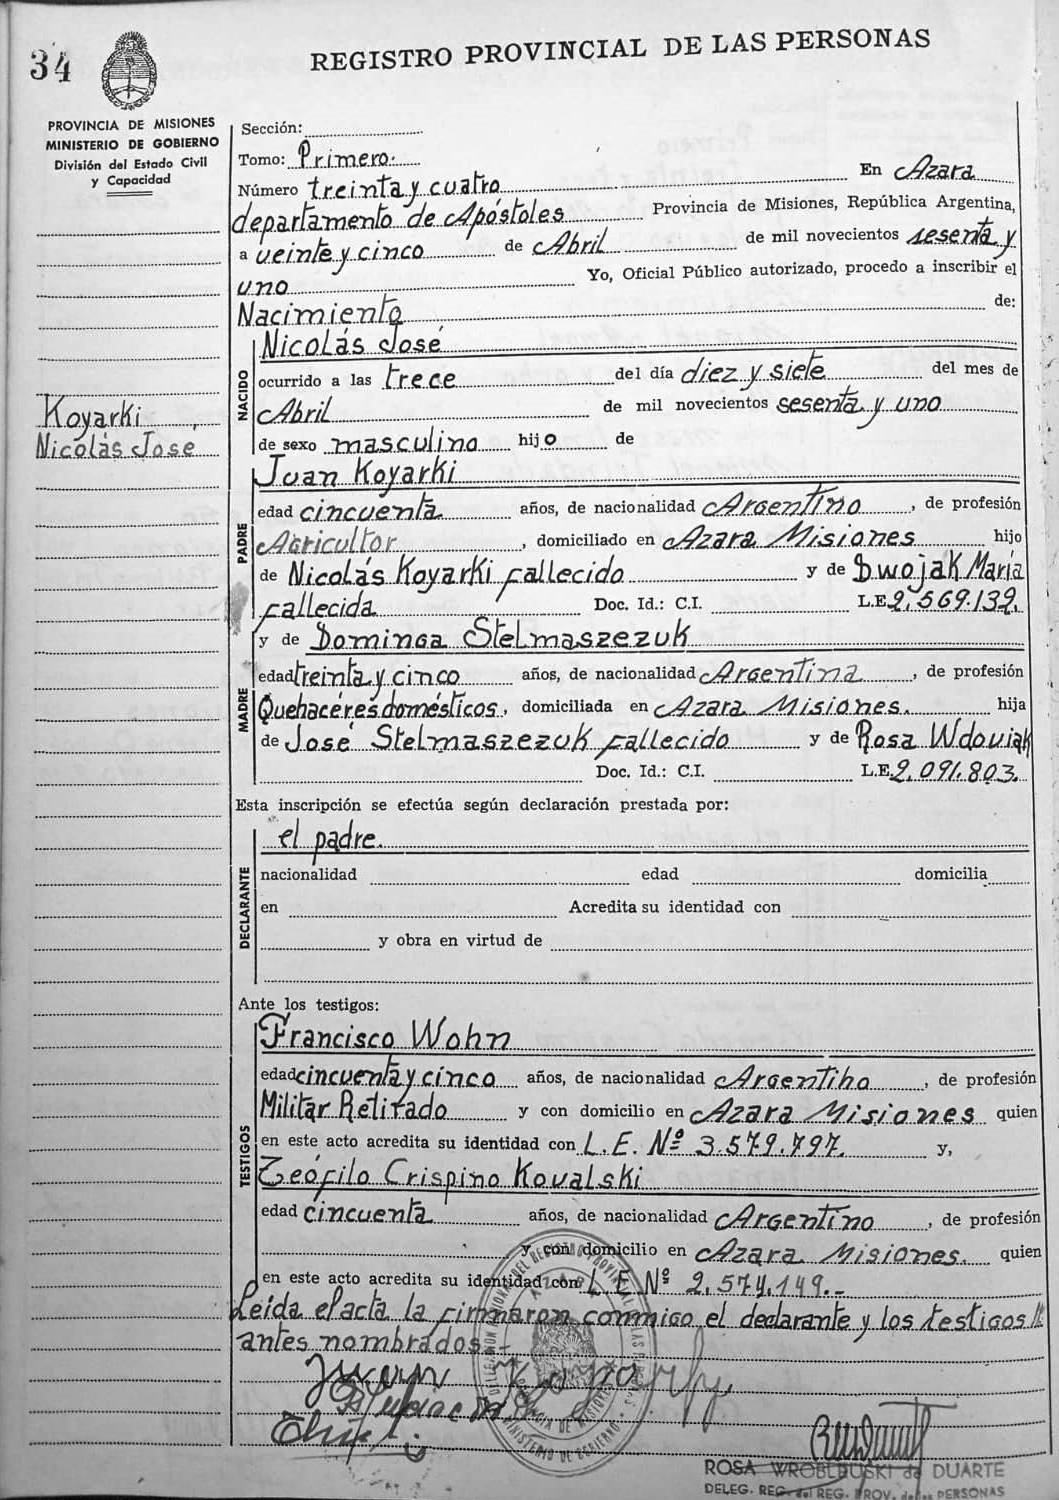 34
REGISTRO PROVINCIAL DE LAS PERSONAS
PROVINCIA DE MISIONES
MINISTERIO DE GOBIERNO
División del Estado Civil
y Capacidad
Koyarki
Nicolás Jose
Sección:
Tomo: Primero.
Número treinta y cuatro En Azara
departamento de Apóstoles Provincia de Misiones, República Argentina,
a veinte y cinco de Abril de mil novecientos sesenta y
uno Yo, Oficial Público autorizado, procedo a inscribir el
Nacimiento de:
NACIDO
Nicolás José
ocurrido a las trece del día diez y siete del mes de
Abril de mil novecientos sesenta y uno
de sexo masculino hijo de
PADRE
Juan Koyarki
edad cincuenta años, de nacionalidad Argentino, de profesión
Agricultor, domiciliado en Azara Misiones hijo
de Nicolás Koyarki fallecido y de Dwojak María
fallecida Doc. Id.: C.I. L.E 2.569.132.
MADRE
y de Dominga Stelmaszezuk
edad treinta y cinco años, de nacionalidad Argentina, de profesión
Quehacéres domésticos, domiciliada en Azara Misiones. hija
de José Stelmaszezuk fallecido y de Rosa Wdoviak
Doc. Id.: C.I. L.E. 2.091.803.
Esta inscripción se efectúa según declaración prestada por:
DECLARANTE
el padre.
nacionalidad edad domicilia
en Acredita su identidad con
y obra en virtud de
Ante los testigos:
TESTIGOS
Francisco Wohn
edad cincuenta y cinco años, de nacionalidad Argentino, de profesión
Militar Retirado y con domicilio en Azara Misiones quien
en este acto acredita su identidad con L.E. Nº 3.579.797. y,
Teófilo Crispino Kovalski
edad cincuenta años, de nacionalidad Argentino, de profesión
y con domicilio en Azara Misiones. quien
en este acto acredita su identidad con L.E Nº 2.574.149.-
Leída el acta la firmaron conmigo el declarante y los testigos
antes nombrados.-
Juan
DELEGACION DEL REGISTRO PROVINCIAL DE LAS PERSONAS
AZARA
PROVINCIA DE MISIONES
MINISTERIO DE GOBIERNO
ROSA WROBLEUSKI de DUARTE
DELEG. REG. del REG. PROV. de las PERSONAS